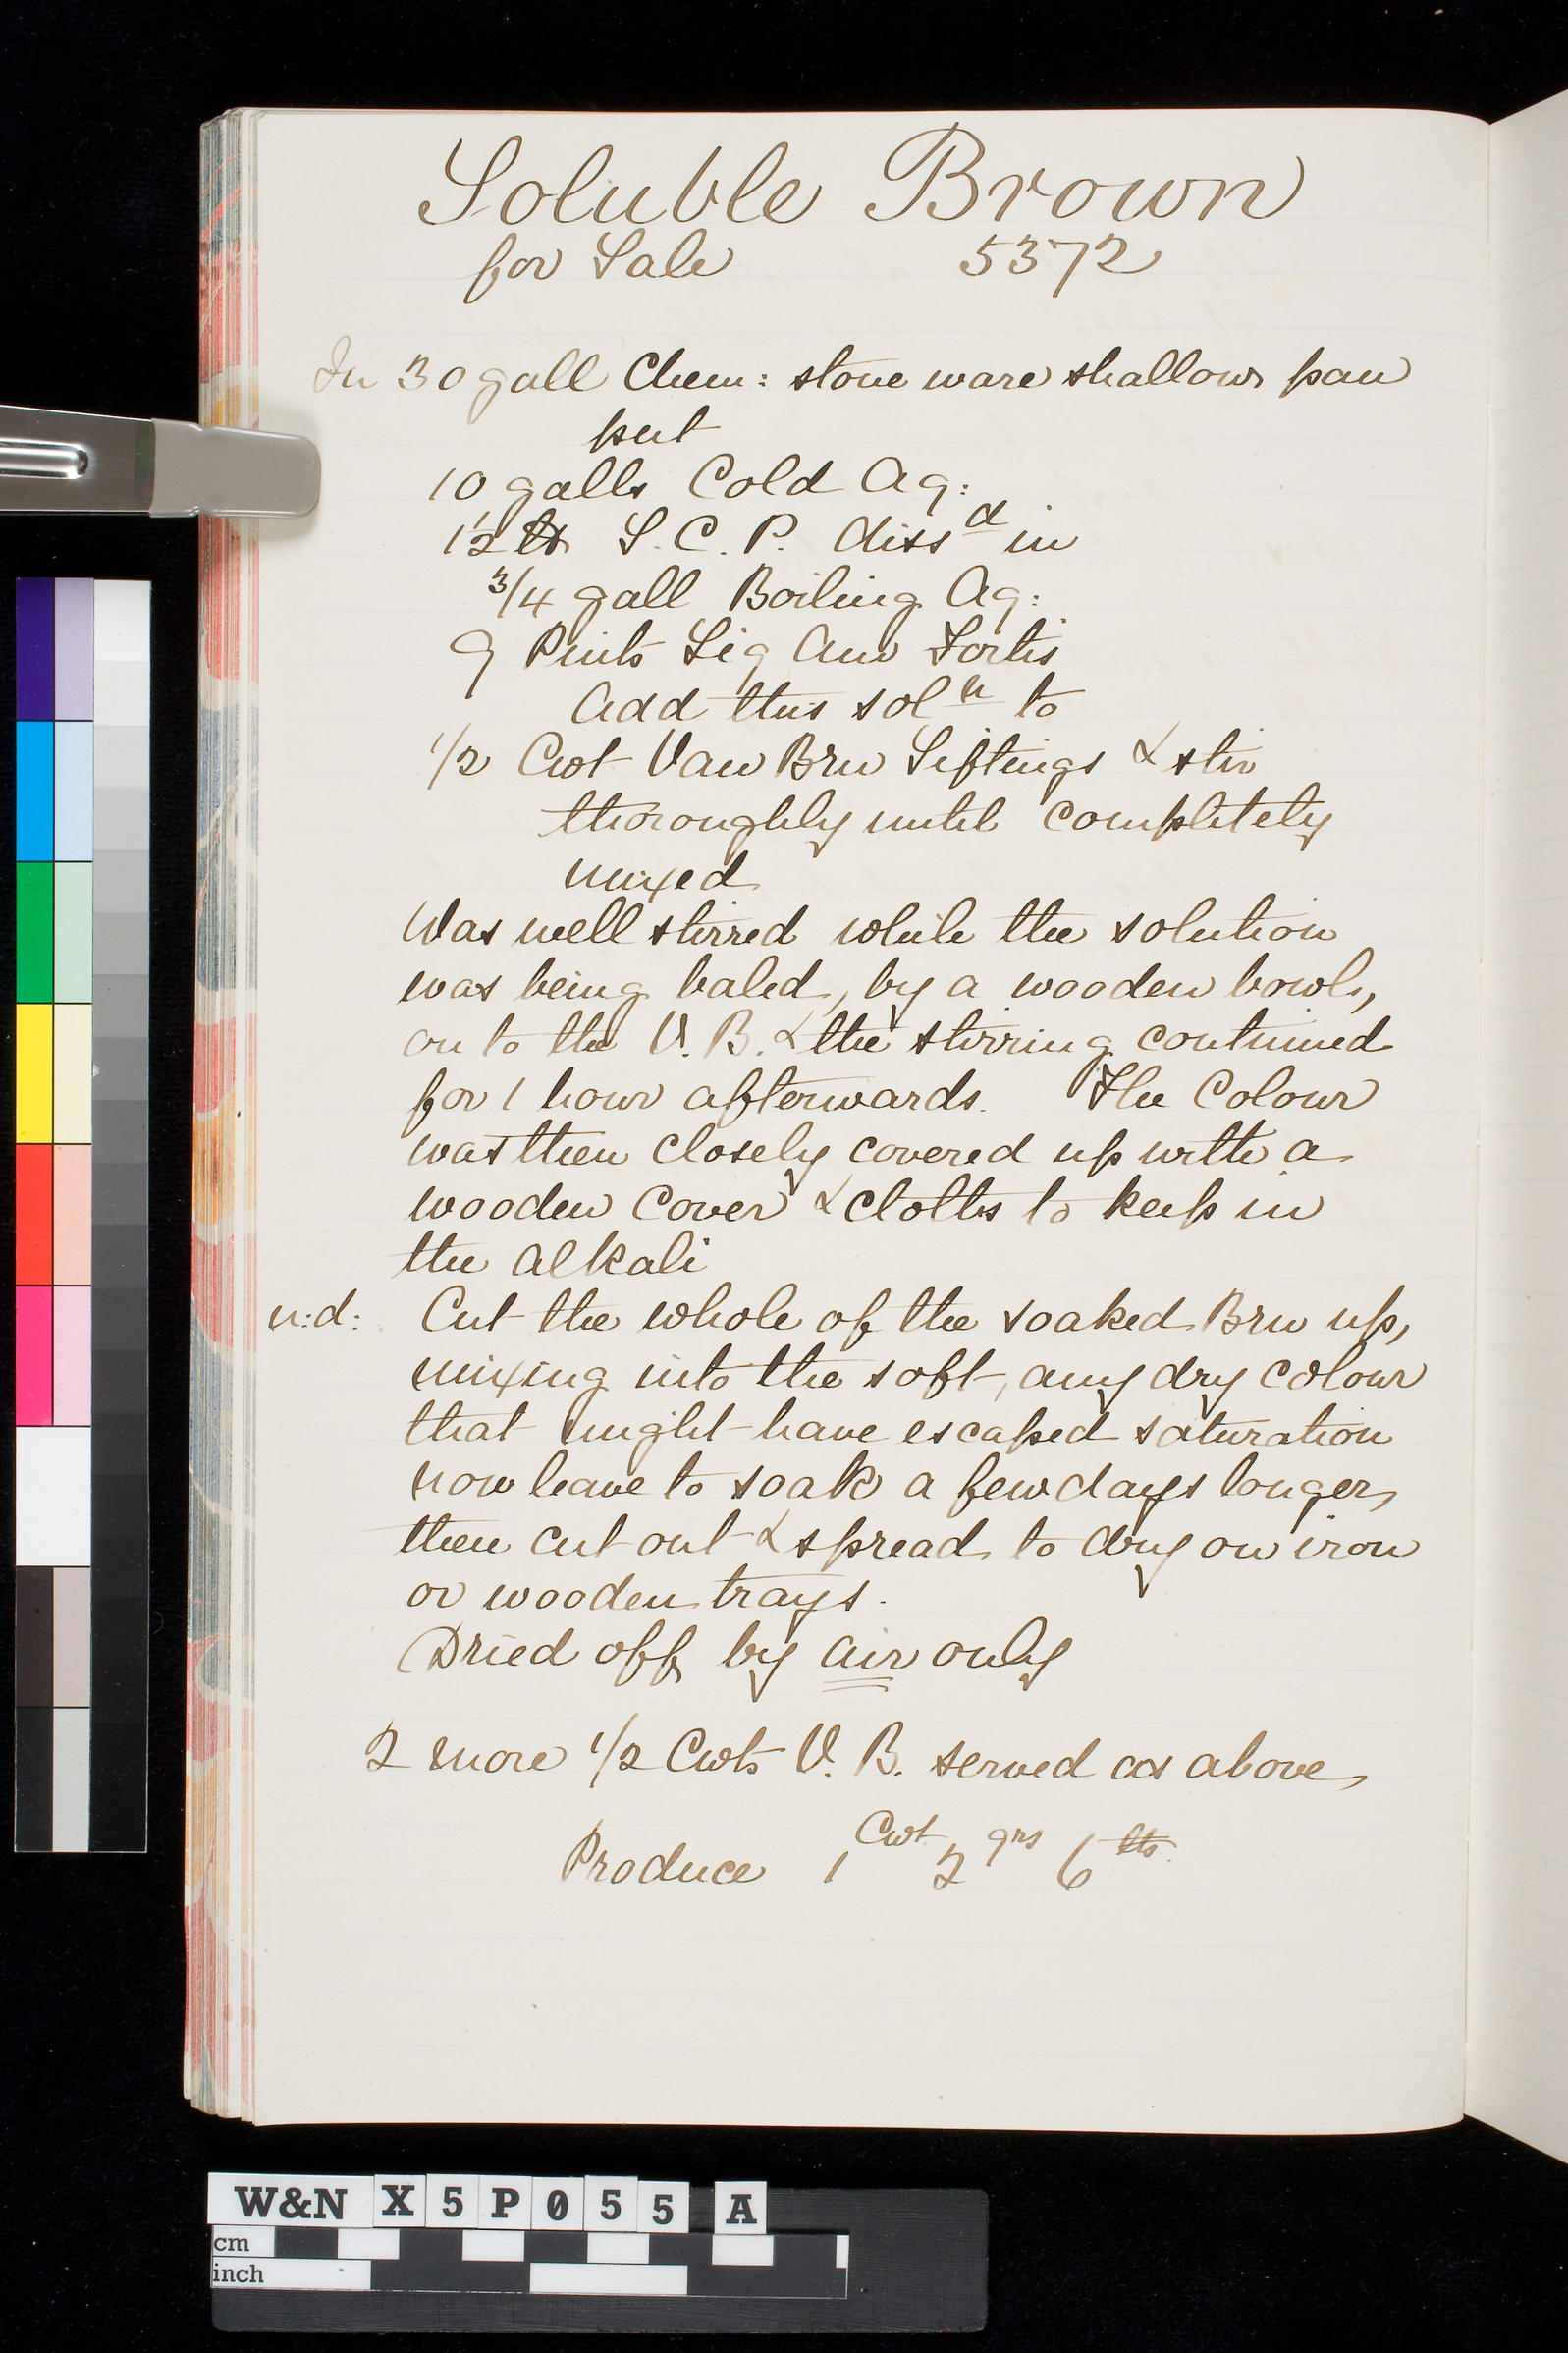 Soluble Brown
for Sale 5372
In 30 gall Chem: stone ware shallow pan
put
10 galls Cold Aq:
12 lb S. C. P. diss^d in
3/4 gall Boiling Aq:
9 Pints Liq Am Fortis
Add this sol^n to
1/2 Cwt Van Brn Siftings & stir
thoroughly until completely
mixed
Was well stirred while the solution
was being baled, by a wooden bowl,
on to the V. B. & the stirring continued
for 1 hour afterwards. The Colour
was then closely covered up with a
wooden cover & cloths to keep in
the alkali
n:d: Cut the whole of the soaked Brn up,
mixing into the soft, any dry colour
that might have escaped saturation
now leave to soak a few days longer,
then cut out & spread to dry on iron
or wooden trays.
Dried off by air only
2 more 1/2 Cwts V. B. served as above,
Produce 1 Cwt 2 qrs 6 lbs
W&N X 5 P 0 5 5 A
cm
inch